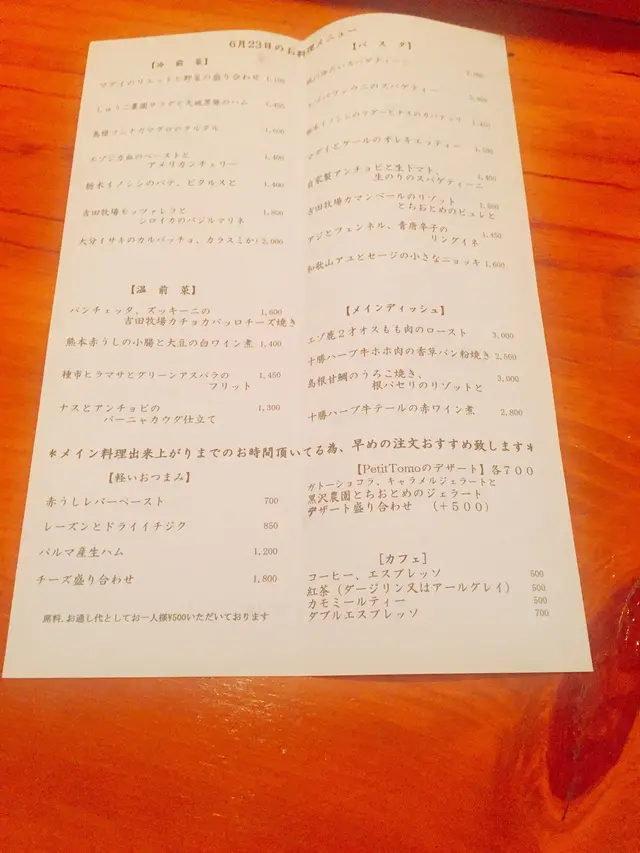 6月23日のお料理メニュー
【冷 前 菜】
マダイのリエットと野菜の盛り合わせ 1,400
農園サラダと 黒豚のハム 1,400
島根コシナガマグロのタルタル 1,600
エゾシカ血のペーストと 1,400
アメリカンチェリー
栃木イノシシのパテ、ピクルスと 1,400
吉田牧場モッツァレラと 1,800
シロイカのバジルマリネ
大分イサキのカルパッチョ、カラスミか 2,000
【温 前 菜】
パンチェッタ、ズッキーニの 1,600
吉田牧場カチョカバッロチーズ焼き
熊本赤うしの小腸と大豆の白ワイン煮 1,400
種市ヒラマサとグリーンアスパラの 1,450
フリット
ナスとアンチョビの 1,300
バーニャカウダ仕立て
【パ ス タ】
冷たいスパゲティーニ
エゾバフンウニのスパゲティー
栃木イノシシのラグーとナスのカバテッリ 1,450
マダイとケールのオレキエッティー 1,500
自家製アンチョビと生トマト、 1,450
生のりのスパゲティーニ
吉田牧場カマンベールのリゾット 1,500
とちおとめのピュレと
アジとフェンネル、青唐辛子の 1,450
リングイネ
和歌山アユとセージの小さなニョッキ 1,600
【メインディッシュ】
エゾ鹿2才オスもも肉のロースト 3,000
十勝ハーブ牛ホホ肉の香草パン粉焼き 2,500
島根甘鯛のうろこ焼き、 3,000
根パセリのリゾットと
十勝ハーブ牛テールの赤ワイン煮 2,800
*メイン料理出来上がりまでのお時間頂いてる為、早めの注文おすすめ致します*
【軽いおつまみ】
赤うしレバーペースト 700
レーズンとドライイチジク 850
パルマ産生ハム 1,200
チーズ盛り合わせ 1,800
席料、お通し代としてお一人様¥500いただいております
【PetitTomoのデザート】各700
ガトーショコラ、キャラメルジェラートと
黒沢農園とちおとめのジェラート
デザート盛り合わせ (+500)
【カフェ】
コーヒー、エスプレッソ 500
紅茶(ダージリン又はアールグレイ) 500
カモミールティー 500
ダブルエスプレッソ 700